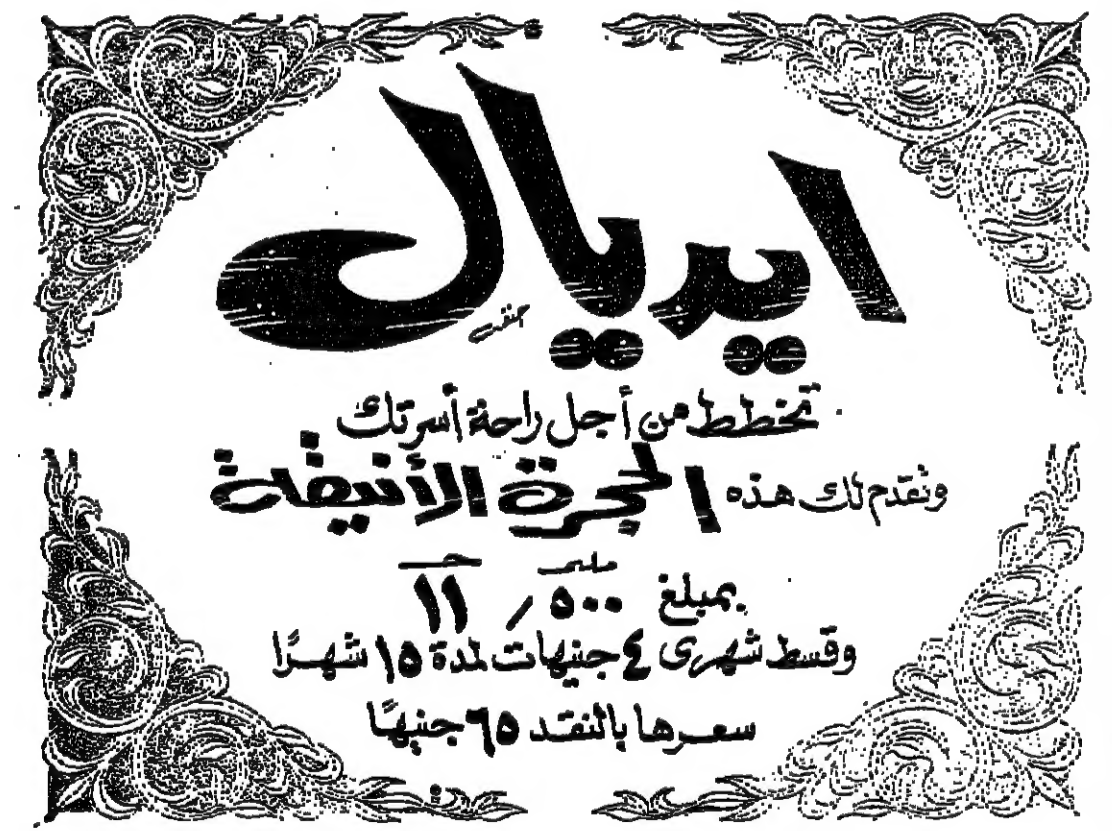 ايديال
تخطط من أجل راحة أسرتك
ونقدم لك هذه الحجرة الأنيقة
مليم جـ
بمبلغ ٥٠٠ / ١١
وقسط شهرى ٤ جنيهات لمدة ١٥ شهرًا
سعرها بالنقد ٦٥ جنيهًا